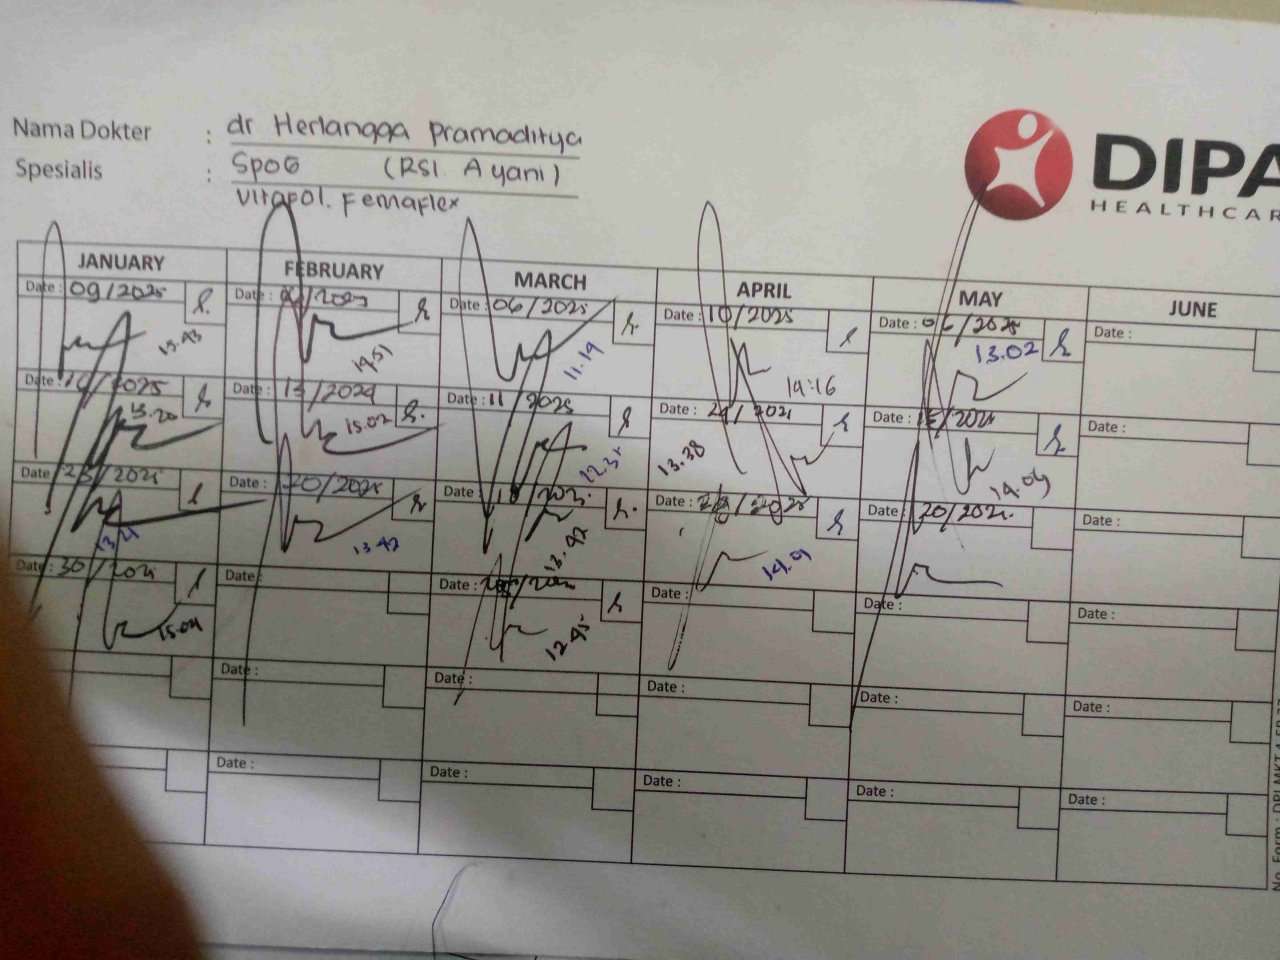 Nama Dokter : dr Herlangga Pramaditya
Spesialis : SpOG (RSI. A yani)
Vitapol. Femaflex
DIPA
HEALTHCAR
JANUARY FEBRUARY MARCH APRIL MAY JUNE
Date : 09/2025 Date : Date : 06/2025 Date : 10/2025 Date : 06/2025 Date :
13.43 14.51 11.19 14:16 13.02
Date : 14/2025 Date : 13/2025 Date : 11/2025 Date : Date : Date :
13.20 15.02 13.38 14.09
Date : Date : 20/2025 Date : 18/202 Date : 28/2025 Date : 20/202 Date :
13.21 13.42 13.42 14.01
Date : 30/202 Date : Date : Date : Date : Date :
15.04 12.45
Date : Date : Date : Date : Date :
Date : Date : Date : Date : Date :